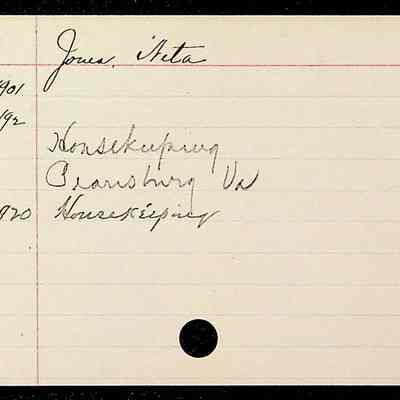 Jones, Nita
901
192
Housekeeping
Pearisburg Va
920 Housekeeping